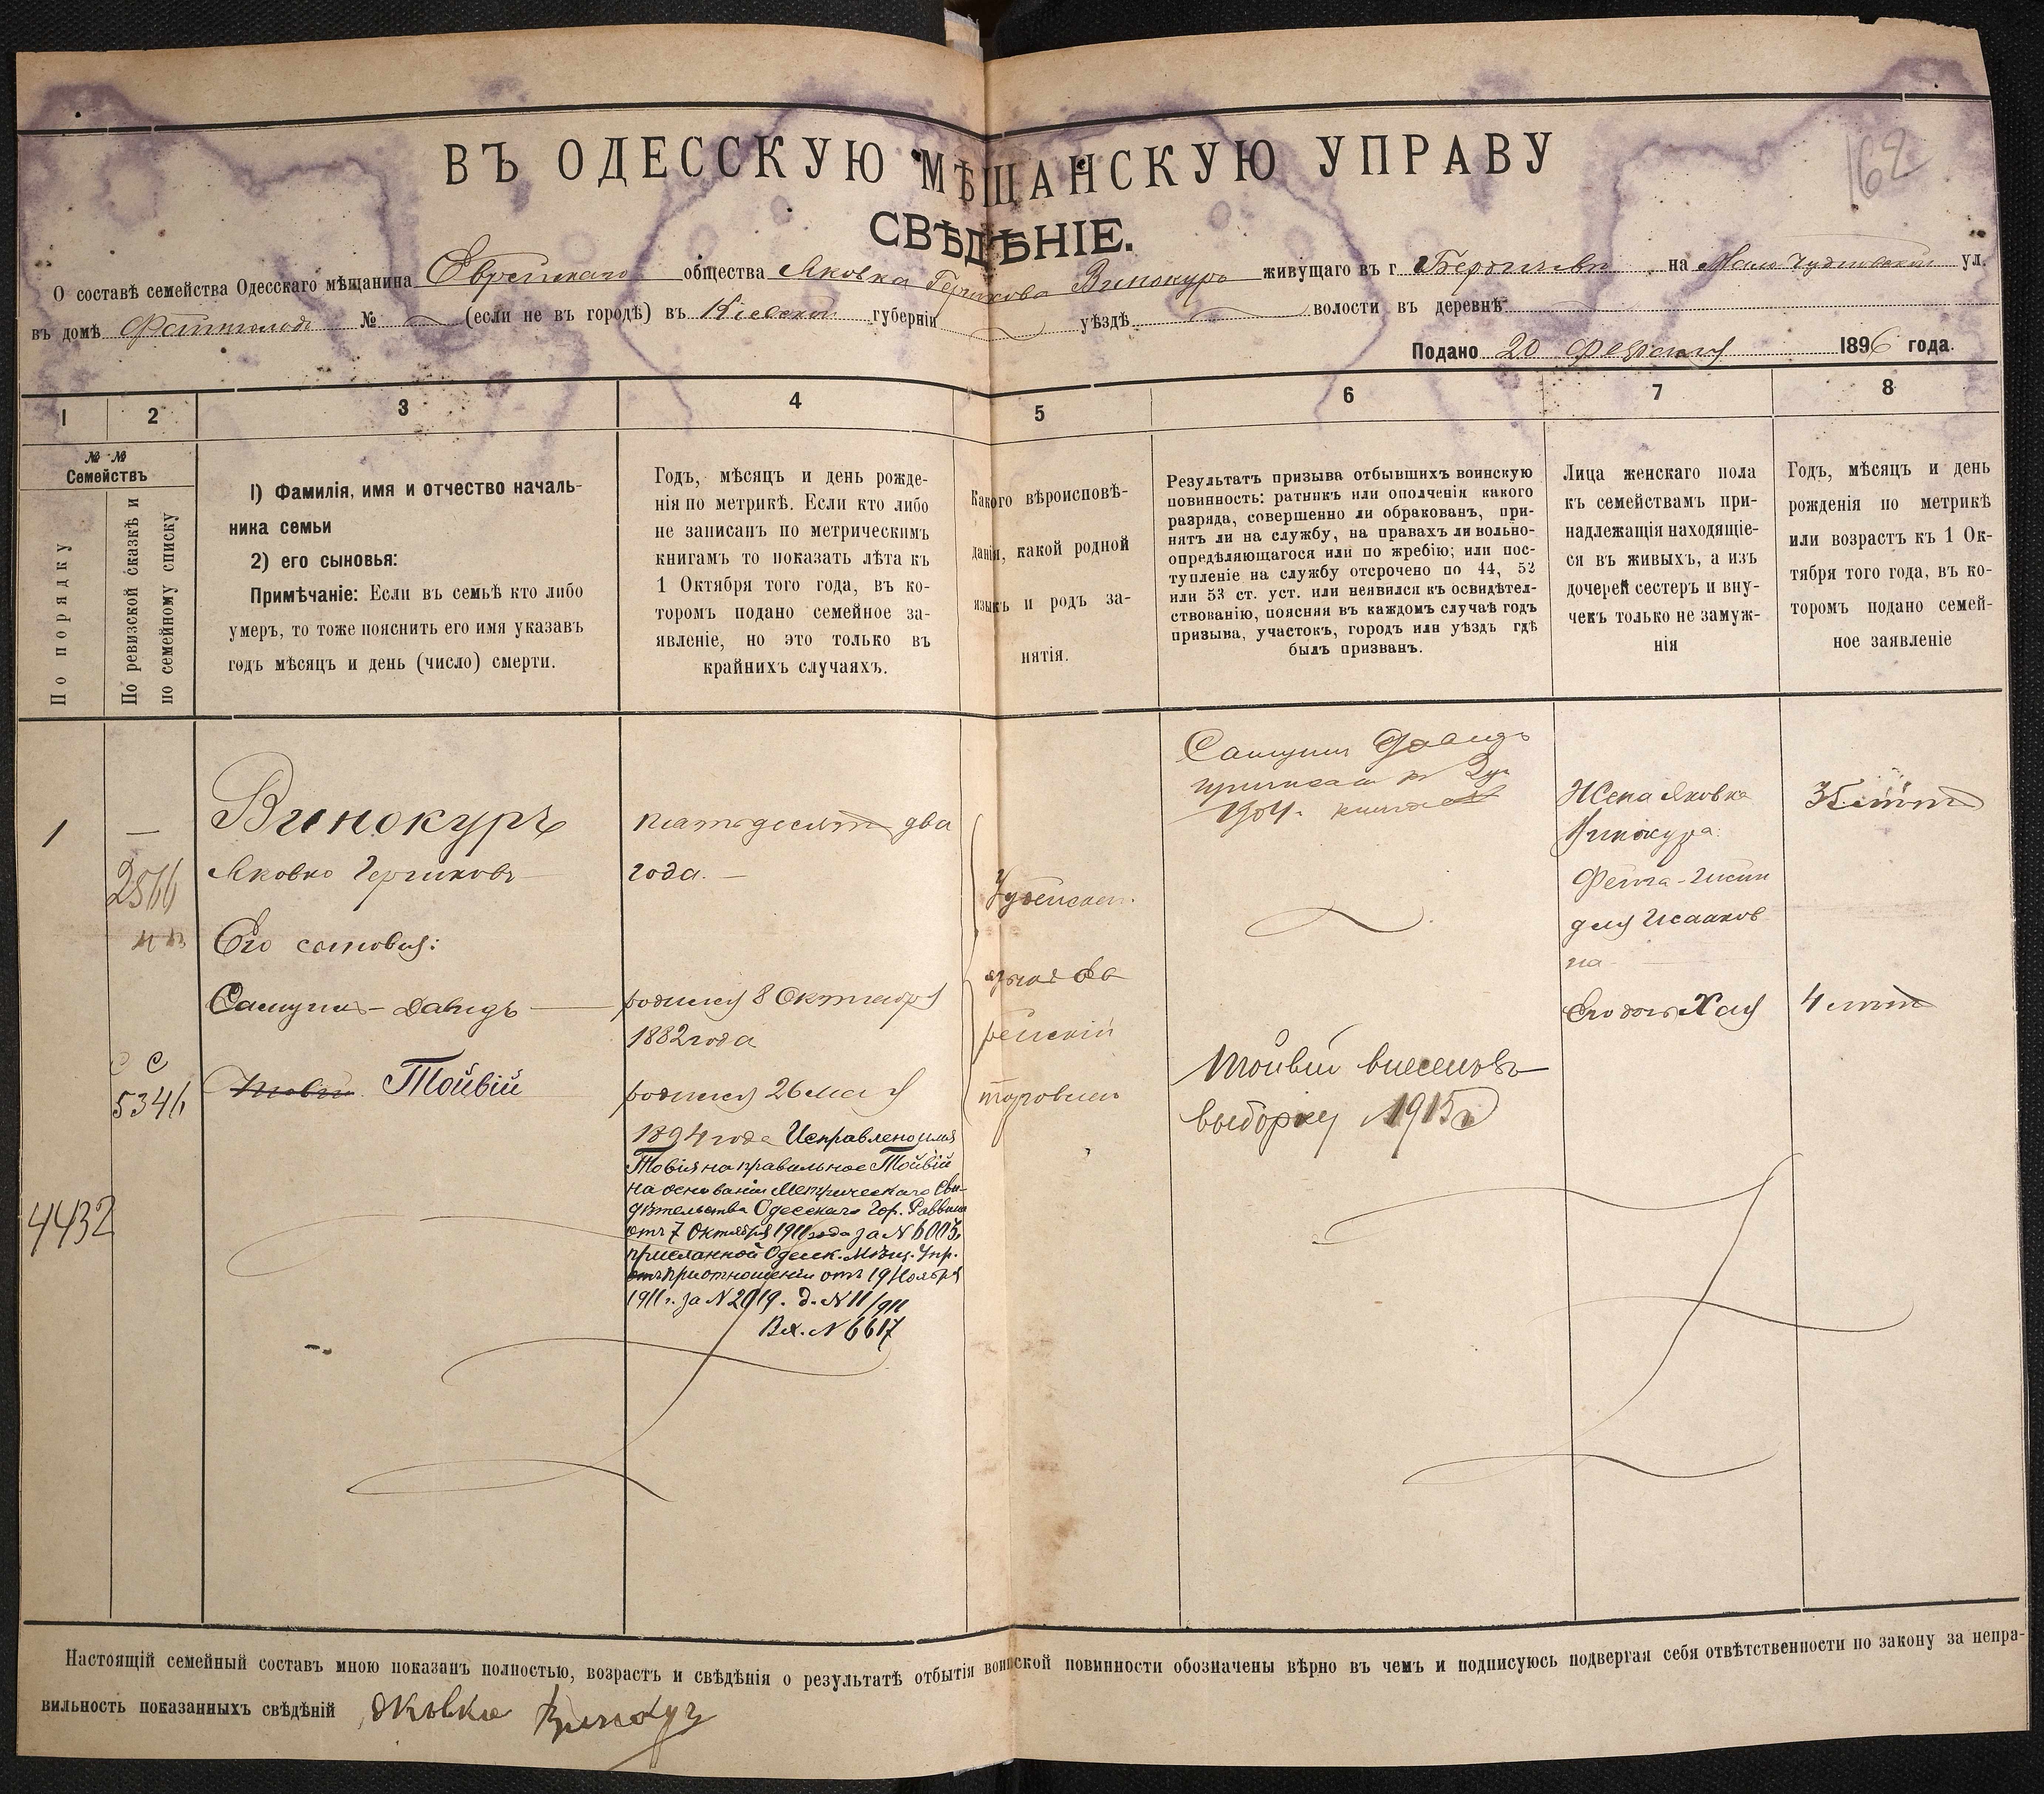 162
ВЪ ОДЕССКУЮ МѢЩАНСКУЮ УПРАВУ
СВѢДѢНІЕ.
О составѣ семейства Одесскаго мѣщанина Еврейскаго общества Яковка Гершкова Винокуръ живущаго въ г Бердичевѣ на Мало Чудновской ул.
въ домѣ № (если не въ городѣ) въ Кіевской губерніи уѣздѣ волости въ деревнѣ
Подано 20 Февраля 1896 года.
1 2 3 4 5 6 7 8
№ №
Семействъ
По порядку
По ревизской сказкѣ и
по семейному списку
1) Фамилія, имя и отчество началь-
ника семьи
2) его сыновья:
Примѣчаніе: Если въ семьѣ кто либо
умеръ, то тоже пояснить его имя указавъ
годъ мѣсяцъ и день (число) смерти.
Годъ, мѣсяцъ и день рожде-
нія по метрикѣ. Если кто либо
не записанъ по метрическимъ
книгамъ то показать лѣта къ
1 Октября того года, въ ко-
торомъ подано семейное за-
явленіе, но это только въ
крайнихъ случаяхъ.
Какого вѣроисповѣ-
данія, какой родной
языкъ и родъ за-
нятія.
Результатъ призыва отбывшихъ воинскую
повинность: ратникъ или ополченія какого
разряда, совершенно ли обракованъ, при-
нятъ ли на службу, на правахъ ли вольно-
опредѣляющагося или по жребію; или пос-
тупленіе на службу отсрочено по 44, 52
или 53 ст. уст. или неявился къ освидѣтел-
ствованію, поясняя въ каждомъ случаѣ годъ
призыва, участокъ, городъ или уѣздъ гдѣ
былъ призванъ.
Лица женскаго пола
къ семействамъ при-
надлежащія находящіе-
ся въ живыхъ, а изъ
дочерей сестеръ и вну-
чекъ только не замуж-
нія
Годъ, мѣсяцъ и день
рожденія по метрикѣ
или возрастъ къ 1 Ок-
тября того года, въ ко-
торомъ подано семей-
ное заявленіе
1 —
Винокуръ
Яковко Гершковъ
Его сыновья:
Самуилъ-Давидъ
Товій Тойвій
5346
4432
пятьдесятъ два
года.
родился 8 Октября
1882 года
родился 26 мая
1894 года Исправлено имя
Товія на правильное Тойвій
на основаніи Метрическаго Сви-
дѣтельства Одесскаго Гор. Раввина
отъ 7 Октября 1911 года за N 6005,
присланной Одесск. Мѣщ. Упр.
при отношеніи отъ 19 Ноября
1911 г. за N 2019. д. N 11/911
Вх. N 6617
Іудейскаго
языкъ Ев
рейскій
торговля
Самуилъ Давидъ
1904.
Тойвій внесенъ въ
выборку 1915 г
Жена Яковка
Винокура
Исааков
на
Его дочь Хая
35 лѣтъ
4 лѣтъ
Настоящій семейный составъ мною показанъ полностью, возрастъ и свѣдѣнія о результатѣ отбытія воинской повинности обозначены вѣрно въ чемъ и подписуюсь подвергая себя отвѣтственности по закону за непра-
вильность показанныхъ свѣдѣній Яковка Винокур